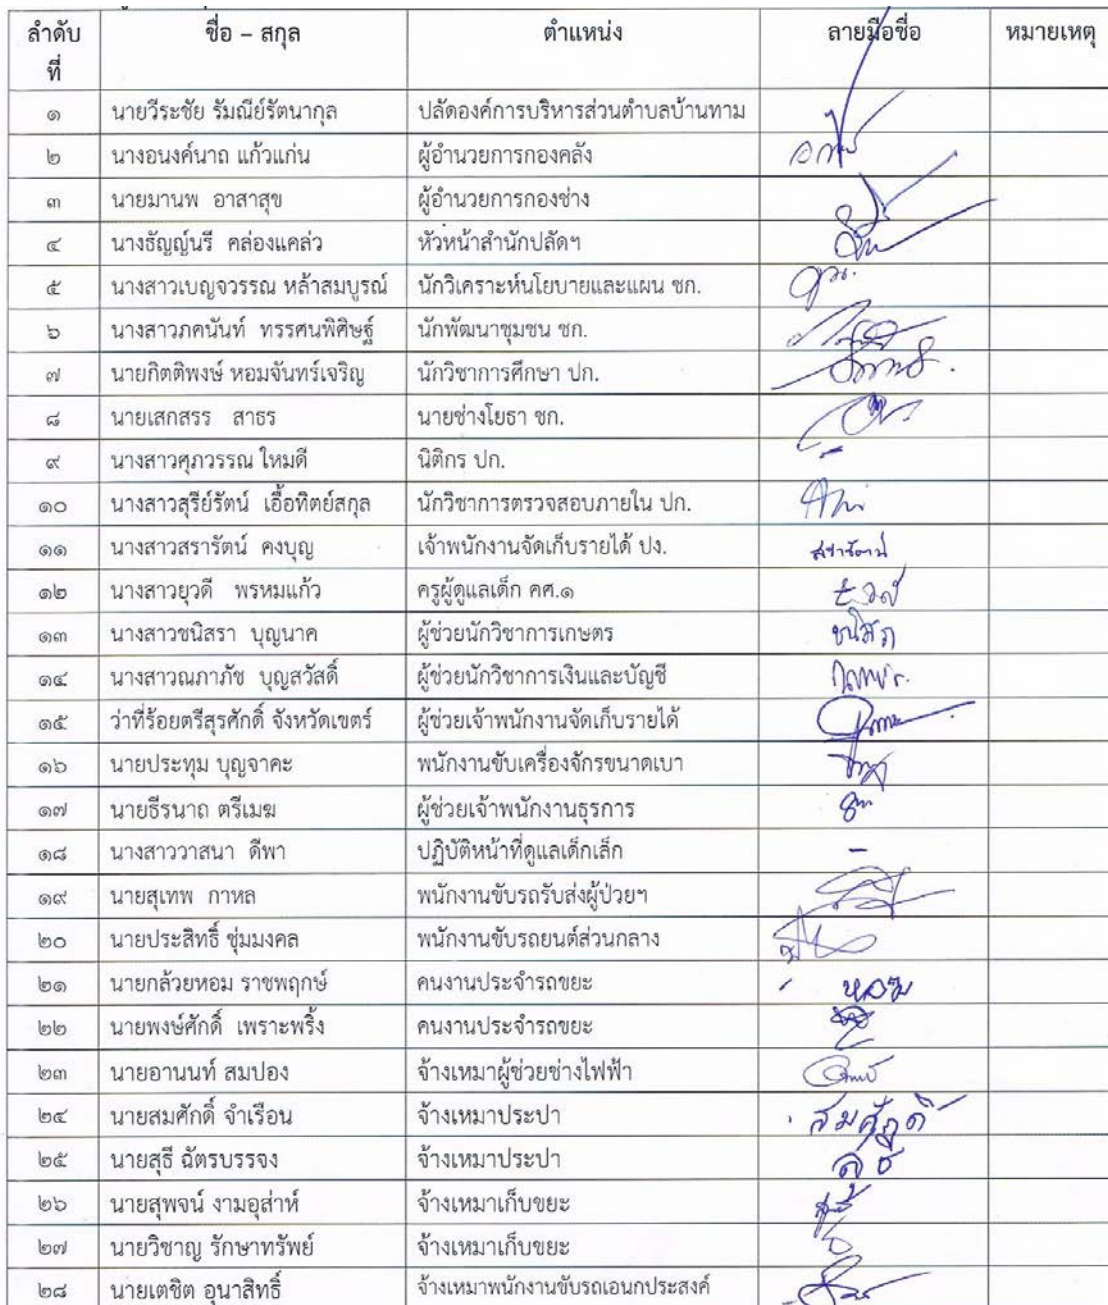 ลำดับที่ ชื่อ – สกุล ตำแหน่ง ลายมือชื่อ หมายเหตุ
๑ นายวีระชัย รัมณีย์รัตนากุล ปลัดองค์การบริหารส่วนตำบลบ้านทาม
๒ นางอนงค์นาถ แก้วแก่น ผู้อำนวยการกองคลัง
๓ นายมานพ อาสาสุข ผู้อำนวยการกองช่าง
๔ นางธัญญ์นรี คล่องแคล่ว หัวหน้าสำนักปลัดฯ
๕ นางสาวเบญจวรรณ หล้าสมบูรณ์ นักวิเคราะห์นโยบายและแผน ชก.
๖ นางสาวภคนันท์ ทรรศนพิศิษฐ์ นักพัฒนาชุมชน ชก.
๗ นายกิตติพงษ์ หอมจันทร์เจริญ นักวิชาการศึกษา ปก.
๘ นายเสกสรร สาธร นายช่างโยธา ชก.
๙ นางสาวศุภวรรณ ใหมดี นิติกร ปก. -
๑๐ นางสาวสุรีย์รัตน์ เอื้อทิตย์สกุล นักวิชาการตรวจสอบภายใน ปก.
๑๑ นางสาวสรารัตน์ คงบุญ เจ้าพนักงานจัดเก็บรายได้ ปง. สรารัตน์
๑๒ นางสาวยุวดี พรหมแก้ว ครูผู้ดูแลเด็ก คศ.๑
๑๓ นางสาวชนิสรา บุญนาค ผู้ช่วยนักวิชาการเกษตร
๑๔ นางสาวณภาภัช บุญสวัสดิ์ ผู้ช่วยนักวิชาการเงินและบัญชี
๑๕ ว่าที่ร้อยตรีสุรศักดิ์ จังหวัดเขตร์ ผู้ช่วยเจ้าพนักงานจัดเก็บรายได้
๑๖ นายประทุม บุญจาคะ พนักงานขับเครื่องจักรขนาดเบา
๑๗ นายธีรนาถ ตรีเมฆ ผู้ช่วยเจ้าพนักงานธุรการ
๑๘ นางสาววาสนา ดีพา ปฏิบัติหน้าที่ดูแลเด็กเล็ก -
๑๙ นายสุเทพ กาหล พนักงานขับรถรับส่งผู้ป่วยฯ
๒๐ นายประสิทธิ์ ชุ่มมงคล พนักงานขับรถยนต์ส่วนกลาง
๒๑ นายกล้วยหอม ราชพฤกษ์ คนงานประจำรถขยะ หอม
๒๒ นายพงษ์ศักดิ์ เพราะพริ้ง คนงานประจำรถขยะ
๒๓ นายอานนท์ สมปอง จ้างเหมาผู้ช่วยช่างไฟฟ้า
๒๔ นายสมศักดิ์ จำเรือน จ้างเหมาประปา สมศักดิ์
๒๕ นายสุธี ฉัตรบรรจง จ้างเหมาประปา สุธี
๒๖ นายสุพจน์ งามอุส่าห์ จ้างเหมาเก็บขยะ
๒๗ นายวิชาญ รักษาทรัพย์ จ้างเหมาเก็บขยะ
๒๘ นายเตชิต อุนาสิทธิ์ จ้างเหมาพนักงานขับรถเอนกประสงค์